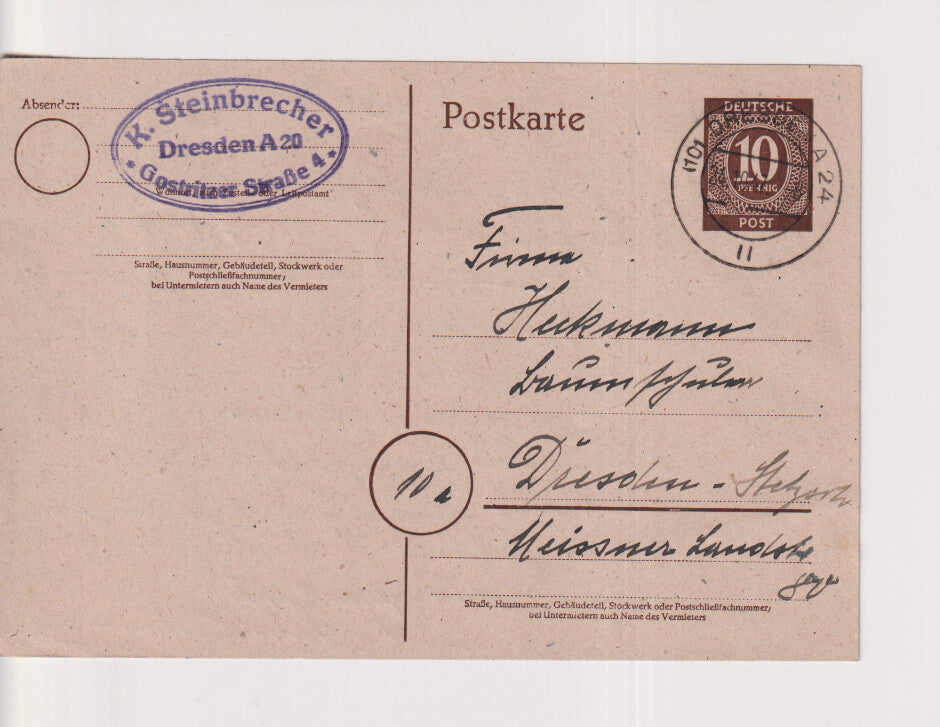 Absender:
K. Steinbrecher
Dresden A 20
* Gostritzer Straße 4 *
Wohnort, auch Zustell- oder Leitpostamt
Straße, Hausnummer, Gebäudeteil, Stockwerk oder
Postschließfachnummer;
bei Untermietern auch Name des Vermieters
Postkarte
DEUTSCHE
10
PFENNIG
POST
(10)
A 24
II
Firma
Heckmann
Baumschulen
10 a
Dresden -
Meissner Landstr
Straße, Hausnummer, Gebäudeteil, Stockwerk oder Postschließfachnummer;
bei Untermietern auch Name des Vermieters